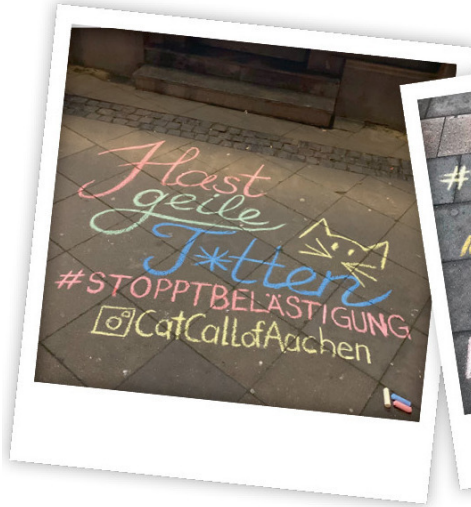 Hast
geile
T*tten
#STOPPTBELÄSTIGUNG
CatCallofAachen
#